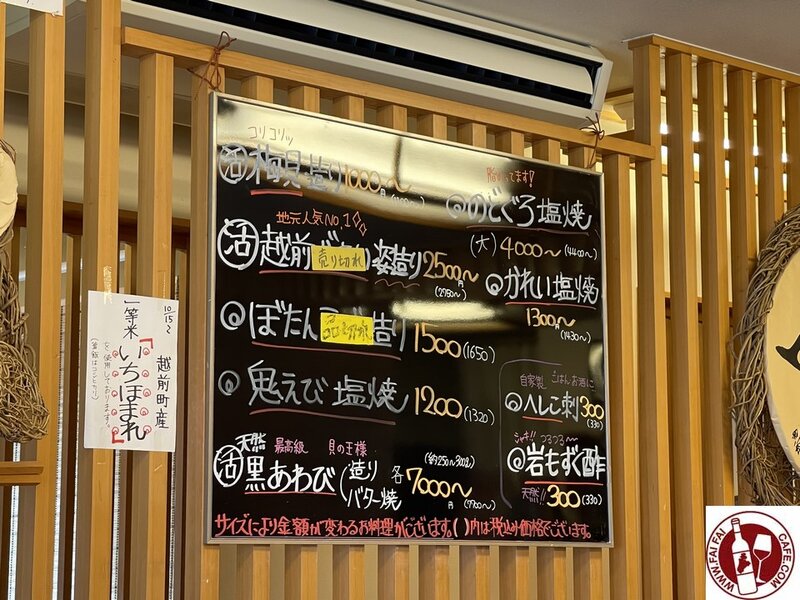 コリコリッ
活 梅貝造り 1000円〜
脂のってます!
のどぐろ塩焼
(大) 4000〜(4400〜)
地元人気No.1
活 越前 売り切れ 姿造り 2500円〜
(2750〜)
かれい塩焼
1300円〜
(1430〜)
ぼたん 造り 1500(1650)
鬼えび塩焼 1200(1320)
自家製 ごはんお酒に
へしこ刺 300
(330)
シャキ!! つるつる〜
岩もずく酢
天然!! 300(330)
天然 最高級 貝の王様
活 黒あわび (造り バター焼 各 7000円〜(7700〜)
(約250〜300g)
サイズにより金額が変わるお料理がございます。( )内は税込み価格でございます。
10/15〜
越前町産
一等米「いちほまれ」
を使用しております。
WWW.FAIFAICAFE.COM